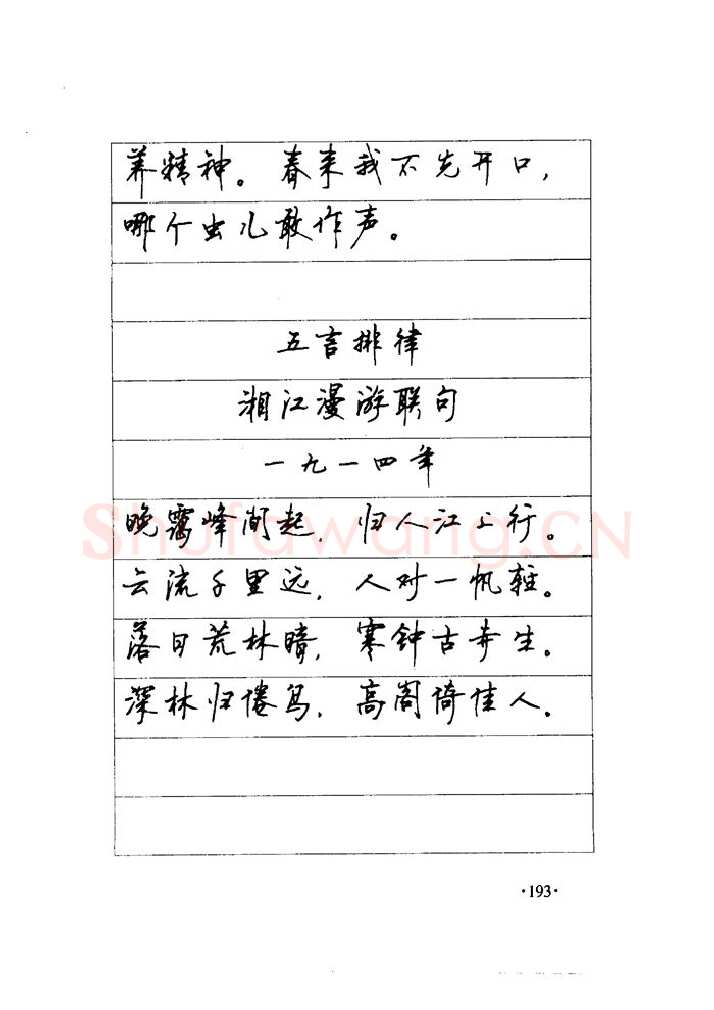 养精神。春来我不先开口，
哪个虫儿敢作声。
五言排律
湘江漫游联句
一九一四年
晚霭峰间起，归人江上行。
云流千里远，人对一帆轻。
落日荒林暗，寒钟古寺生。
深林归倦鸟，高阁倚佳人。
Shufawang.CN
·193·